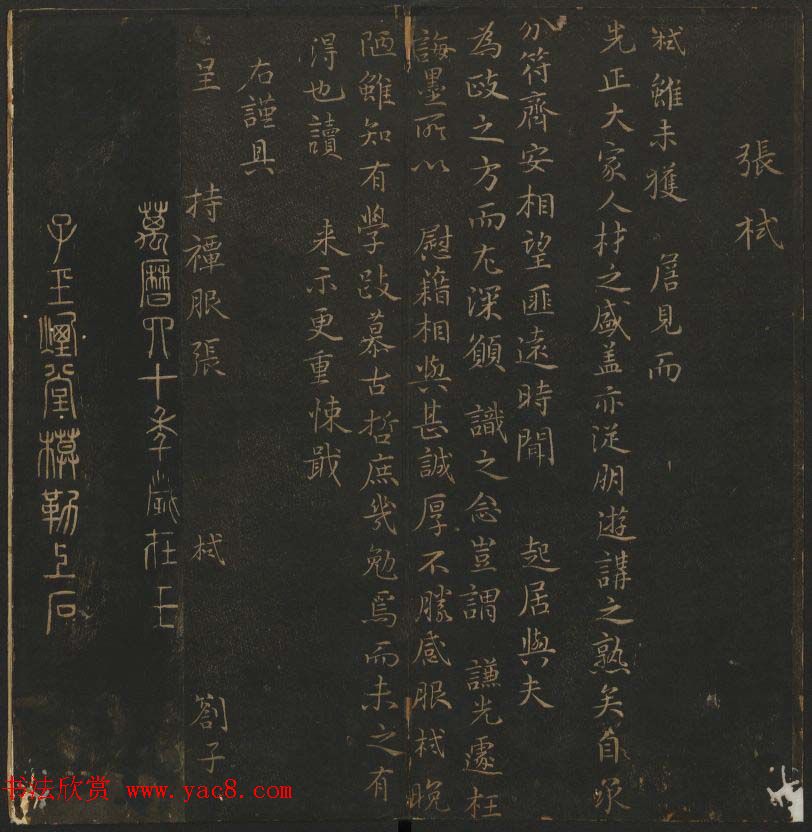 張栻
栻雖未獲 詹見而
先正大家人材之盛盖亦從朋遊講之熟矣自承
分符齊安相望匪遠時聞 起居與夫
為政之方而尤深願 識之念豈謂 謙光遽枉
誨墨所以 慰藉相與甚誠厚不勝感服栻晚
陋雖知有學跂慕古哲庶幾勉焉而未之有
得也讀 来示更重悚戢
右謹具
呈 持禫服張 栻 劄子
萬曆四十年歲在壬
子玉煙堂模勒上石
书法欣赏 www.yac8.com